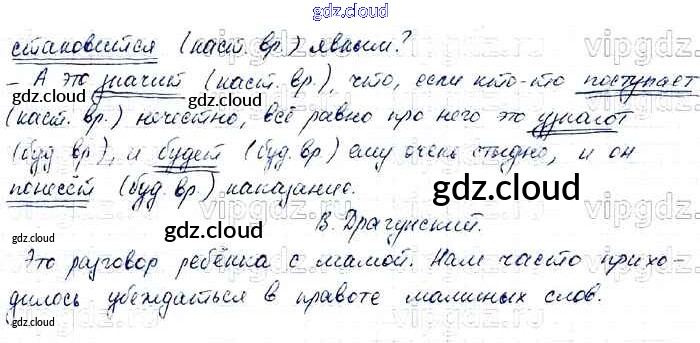 gdz.cloud
становится (наст. вр.) явным?
- А это значит (наст. вр.), что, если кто-то поступает
gdz.cloud
gdz.cloud
(наст. вр.) нечестно, всё равно про него это узнают
(буд. вр.), и будет (буд. вр) ему очень стыдно, и он
понесёт (буд. вр.) наказание.
gdz.cloud
В. Драгунский.
gdz.cloud
gdz.cloud
Это разговор ребёнка с мамой. Нам часто прихо-
дилось убеждаться в правоте маминых слов.
gdz.cloud
gdz.cloud